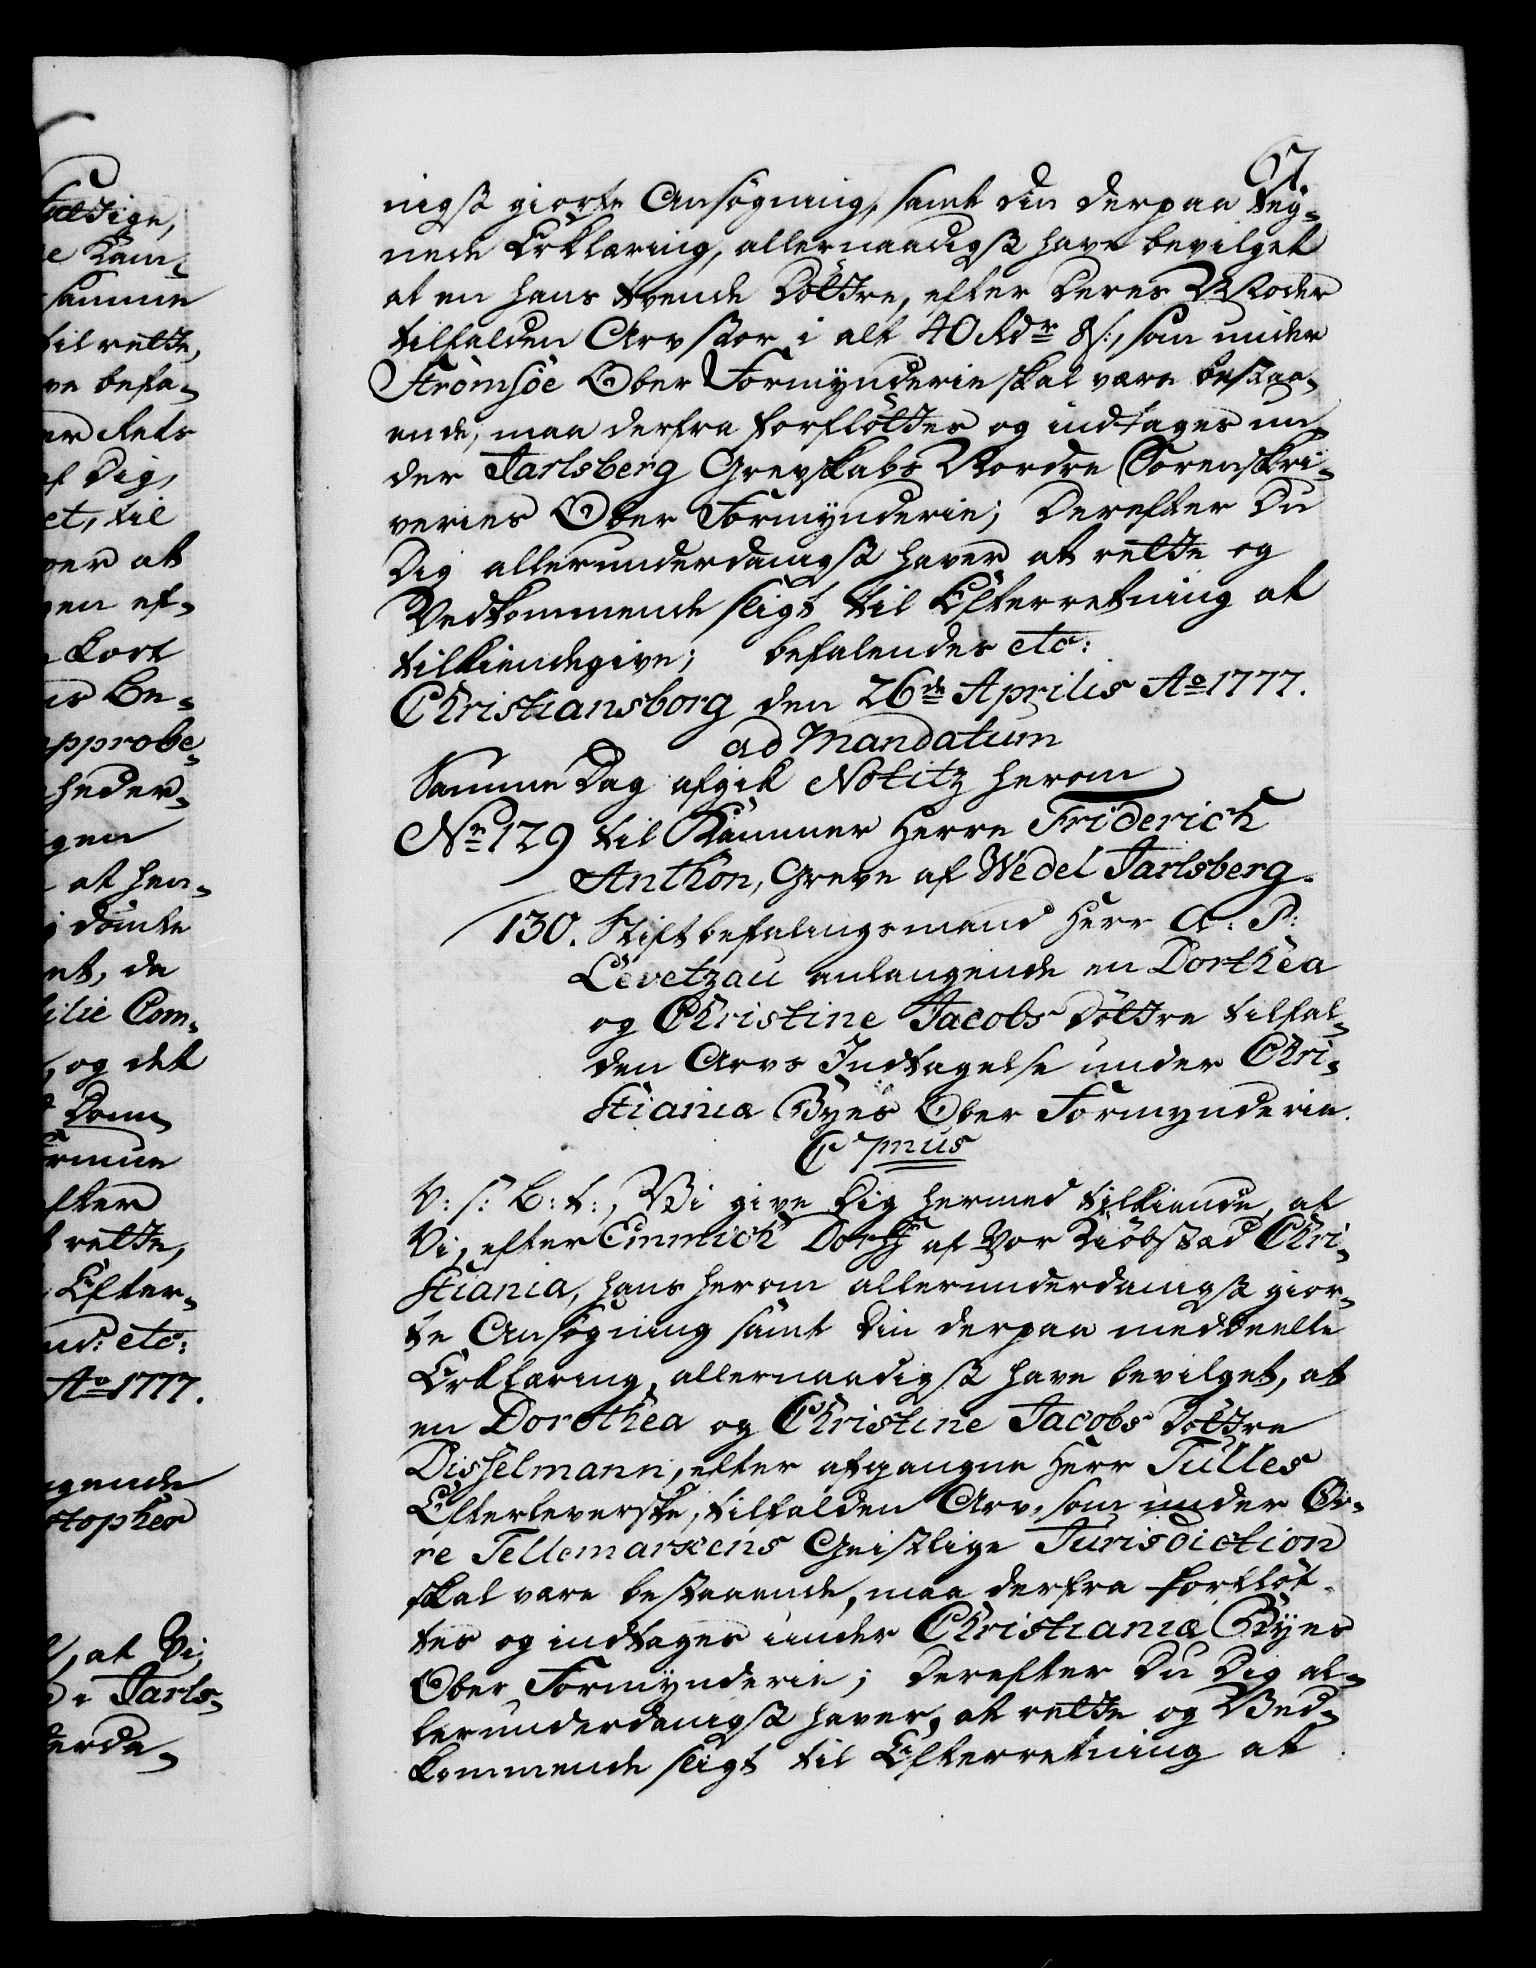 67.
nigst giorte Ansögning, samt din derpaa teg-
nede Erklæring, allernaadigst have bevilget
at en hans tvende Döttre, efter Deres Moder
tilfalden Arv stor i alt 40 Rdr 8 s:, som under
Strömsöe Ober Formynderie skal være bestaa-
ende, maa derfra forflöttes og indtages un-
der Jarlsberg Grevskabs Nordre Sorenskri-
veries Ober Formynderie; Derefter Du
Dig allerunderdanigst haver at rette og
Vedkommende sligt til Efterretning at
tilkiendegive; befalendes etc:
Christiansborg den 26de Aprilis Ao 1777.
ad Mandatum
Samme Dag afgik Notitz herom
No 129 til Kammer Herre Friderich
Anthon, Greve af Wedel Jarlsberg.
130. Stiftbefalingsmand Herr A: P:
Levetzau anlangende en Dorthea
og Christine Jacobs Döttre tilfal-
den Arvs Indtagelse under Chri-
stianiæ Byes Ober Formynderie.
C 7mus
V: s: B: t:, Vi give Dig hermed tilkiende, at
Vi, efter Emmich Dorff af Vor Kiöbstad Chri-
stiania, hans herom allerunderdanigst gior-
te Ansögning samt din derpaa meddeelte
Erklæring, allernaadigst have bevilget, at
en Dorothea og Christine Jacobs Döttre
Disselmann, efter afgangne Herr Tulles
Efterleverske, tilfalden Arv, som under Öv-
re Tellemarkens Geistlige Jurisdiction
skal være bestaaende, maa derfra forflöt-
tes og indtages under Christianiæ Byes
Ober Formynderie; Derefter Du Dig al-
lerunderdanigst haver, at rette og Ved-
kommende sligt til Efterretning at